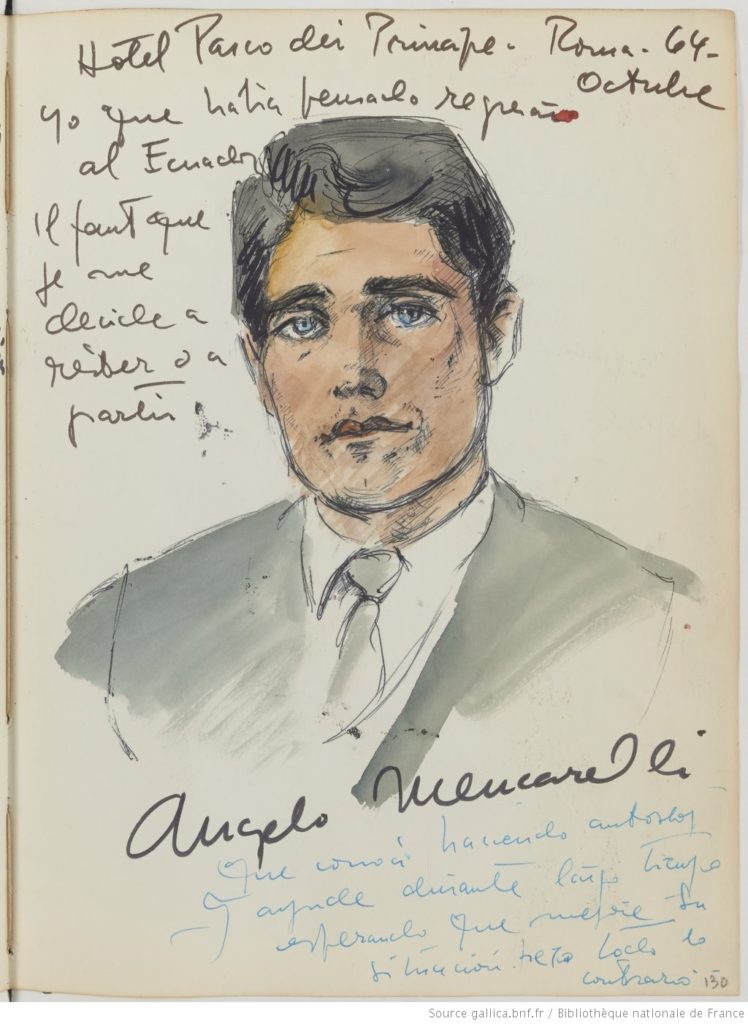 Hotel Parco dei Principe. Roma. 64-
Octubre
Yo que habia pensado regresar
al Ecuador
Il faut que
je me
decide a
rester o a
partir
Angelo Mencarelli
Que conoci haciendo autostop
Y ayude durante largo tiempo
esperando que mejore su
situacion. todo lo
contrario
130
Source gallica.bnf.fr / Bibliothèque nationale de France